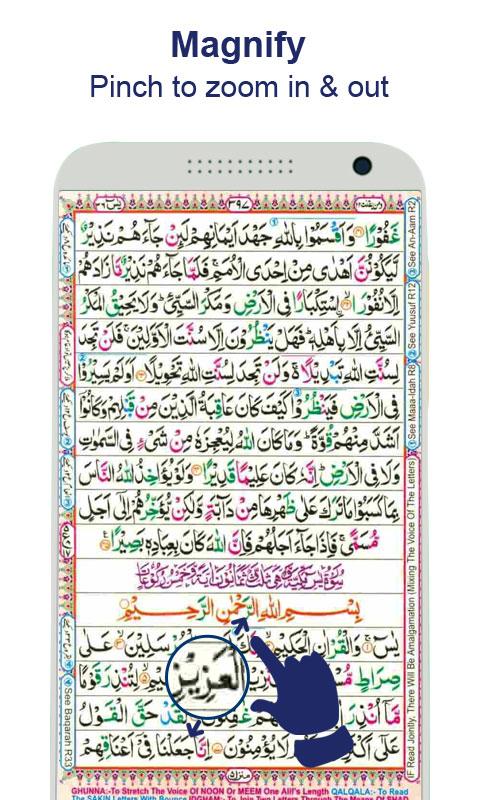 Magnify
Pinch to zoom in & out
يٰسٓ ٣٦
٣٩٧
غَفُوْرًا وَاَقْسَمُوْا بِاللّٰهِ جَهْدَ اَيْمَانِهِمْ لَئِنْ جَآءَهُمْ نَذِيْرٌ
لَّيَكُوْنُنَّ اَهْدٰى مِنْ اِحْدَى الْاُمَمِ فَلَمَّا جَآءَهُمْ نَذِيْرٌ مَّا زَادَهُمْ
اِلَّا نُفُوْرًا اسْتِكْبَارًا فِى الْاَرْضِ وَمَكْرَ السَّيِّئِ وَلَا يَحِيْقُ الْمَكْرُ
السَّيِّئُ اِلَّا بِاَهْلِهٖ فَهَلْ يَنْظُرُوْنَ اِلَّا سُنَّتَ الْاَوَّلِيْنَ فَلَنْ تَجِدَ
لِسُنَّتِ اللّٰهِ تَبْدِيْلًا وَلَنْ تَجِدَ لِسُنَّتِ اللّٰهِ تَحْوِيْلًا اَوَلَمْ يَسِيْرُوْا
فِى الْاَرْضِ فَيَنْظُرُوْا كَيْفَ كَانَ عَاقِبَةُ الَّذِيْنَ مِنْ قَبْلِهِمْ وَكَانُوْٓا
اَشَدَّ مِنْهُمْ قُوَّةً وَمَا كَانَ اللّٰهُ لِيُعْجِزَهٗ مِنْ شَىْءٍ فِى السَّمٰوٰتِ
وَلَا فِى الْاَرْضِ اِنَّهٗ كَانَ عَلِيْمًا قَدِيْرًا وَلَوْ يُؤَاخِذُ اللّٰهُ النَّاسَ
بِمَا كَسَبُوْا مَا تَرَكَ عَلٰى ظَهْرِهَا مِنْ دَآبَّةٍ وَّلٰكِنْ يُّؤَخِّرُهُمْ اِلٰٓى اَجَلٍ
مُّسَمًّى فَاِذَا جَآءَ اَجَلُهُمْ فَاِنَّ اللّٰهَ كَانَ بِعِبَادِهٖ بَصِيْرًا
بِسْمِ اللّٰهِ الرَّحْمٰنِ الرَّحِيْمِ
يٰسٓ وَالْقُرْاٰنِ الْحَكِيْمِ سَلِيْنَ عَلٰى
صِرَاطٍ الْعَزِيْزِ لِتُنْذِرَ قَوْمًا
مَّآ اُنْذِرَ غٰفِلُوْنَ لَقَدْ حَقَّ الْقَوْلُ
عَلٰٓى اَكْثَرِهِمْ لَا يُؤْمِنُوْنَ اِنَّا جَعَلْنَا فِىْٓ اَعْنَاقِهِمْ
منزل ٥
See An-Aam R2
See Yuusuf R12
See Maaa-Idah R8
IF Read Jointly, There Will Be Amalgamation (Mixing The Voice Of The Letters)
See Baqarah R33
GHUNNA:-To Stretch The Voice Of NOON Or MEEM One Alif's Length QALQALA:- To Read
The SAKIN Letters With Bounce IDGHAM:- To Join Two Letters Through The Means Of